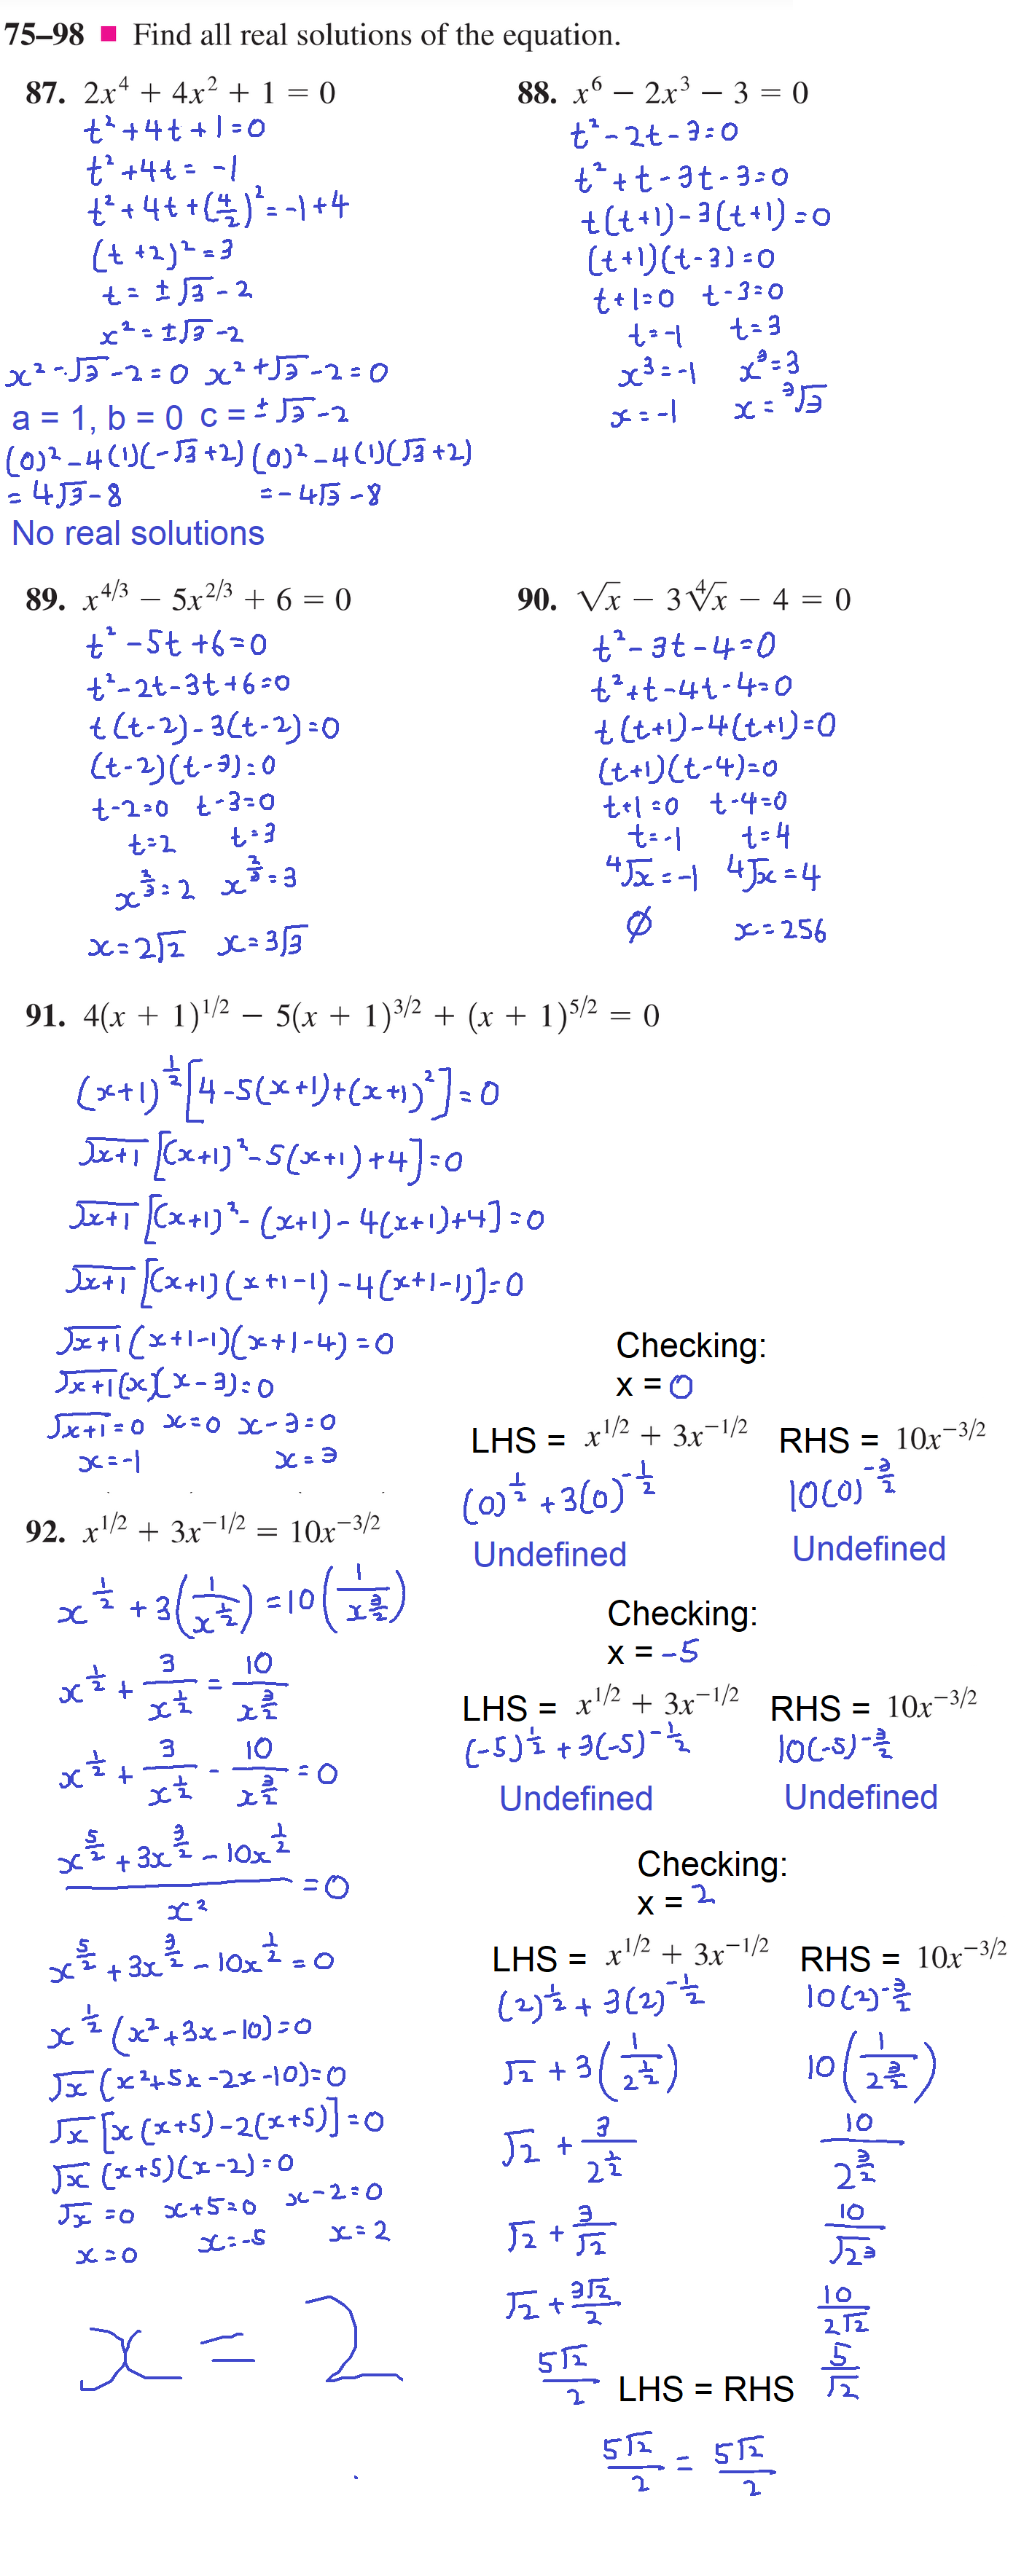 75–98 ■ Find all real solutions of the equation.
87. 2x⁴ + 4x² + 1 = 0
t² + 4t + 1 = 0
t² + 4t = -1
t² + 4t + (4/2)² = -1 + 4
(t + 2)² = 3
t = ±√3 - 2
x² = ±√3 - 2
x² - √3 - 2 = 0 x² + √3 - 2 = 0
a = 1, b = 0 c = ±√3 - 2
(0)² - 4(1)(-√3 + 2) (0)² - 4(1)(√3 + 2)
= 4√3 - 8 = -4√3 - 8
No real solutions
88. x⁶ − 2x³ − 3 = 0
t² - 2t - 3 = 0
t² + t - 3t - 3 = 0
t(t+1) - 3(t+1) = 0
(t+1)(t-3) = 0
t+1=0 t-3=0
t=-1 t=3
x³=-1 x³=3
x=-1 x=³√3
89. x^{4/3} − 5x^{2/3} + 6 = 0
t² - 5t + 6 = 0
t² - 2t - 3t + 6 = 0
t(t-2) - 3(t-2) = 0
(t-2)(t-3) = 0
t-2=0 t-3=0
t=2 t=3
x^{2/3}=2 x^{2/3}=3
x=2√2 x=3√3
90. √x − 3⁴√x − 4 = 0
t² - 3t - 4 = 0
t² + t - 4t - 4 = 0
t(t+1) - 4(t+1) = 0
(t+1)(t-4) = 0
t+1=0 t-4=0
t=-1 t=4
⁴√x=-1 ⁴√x=4
∅ x=256
91. 4(x + 1)^{1/2} − 5(x + 1)^{3/2} + (x + 1)^{5/2} = 0
(x+1)^{1/2}[4 - 5(x+1) + (x+1)²] = 0
√(x+1)[(x+1)² - 5(x+1) + 4] = 0
√(x+1)[(x+1)² - (x+1) - 4(x+1) + 4] = 0
√(x+1)[(x+1)(x+1-1) - 4(x+1-1)] = 0
√(x+1)(x+1-1)(x+1-4) = 0
√(x+1)(x)(x-3) = 0
√(x+1)=0 x=0 x-3=0
x=-1 x=3
92. x^{1/2} + 3x^{−1/2} = 10x^{−3/2}
x^{1/2} + 3(1/x^{1/2}) = 10(1/x^{3/2})
x^{1/2} + 3/x^{1/2} = 10/x^{3/2}
x^{1/2} + 3/x^{1/2} - 10/x^{3/2} = 0
(x^{5/2} + 3x^{3/2} - 10x^{1/2})/x² = 0
x^{5/2} + 3x^{3/2} - 10x^{1/2} = 0
x^{1/2}(x² + 3x - 10) = 0
√x(x² + 5x - 2x - 10) = 0
√x[x(x+5) - 2(x+5)] = 0
√x(x+5)(x-2) = 0
√x=0 x+5=0 x-2=0
x=0 x=-5 x=2
x = 2
Checking:
x = 0
LHS = x^{1/2} + 3x^{−1/2} RHS = 10x^{−3/2}
(0)^{1/2} + 3(0)^{-1/2} 10(0)^{-3/2}
Undefined Undefined
Checking:
x = -5
LHS = x^{1/2} + 3x^{−1/2} RHS = 10x^{−3/2}
(-5)^{1/2} + 3(-5)^{-1/2} 10(-5)^{-3/2}
Undefined Undefined
Checking:
x = 2
LHS = x^{1/2} + 3x^{−1/2} RHS = 10x^{−3/2}
(2)^{1/2} + 3(2)^{-1/2} 10(2)^{-3/2}
√2 + 3(1/2^{1/2}) 10(1/2^{3/2})
√2 + 3/2^{1/2} 10/2^{3/2}
√2 + 3/√2 10/√2³
√2 + 3√2/2 10/2√2
5√2/2 LHS = RHS 5/√2
5√2/2 = 5√2/2